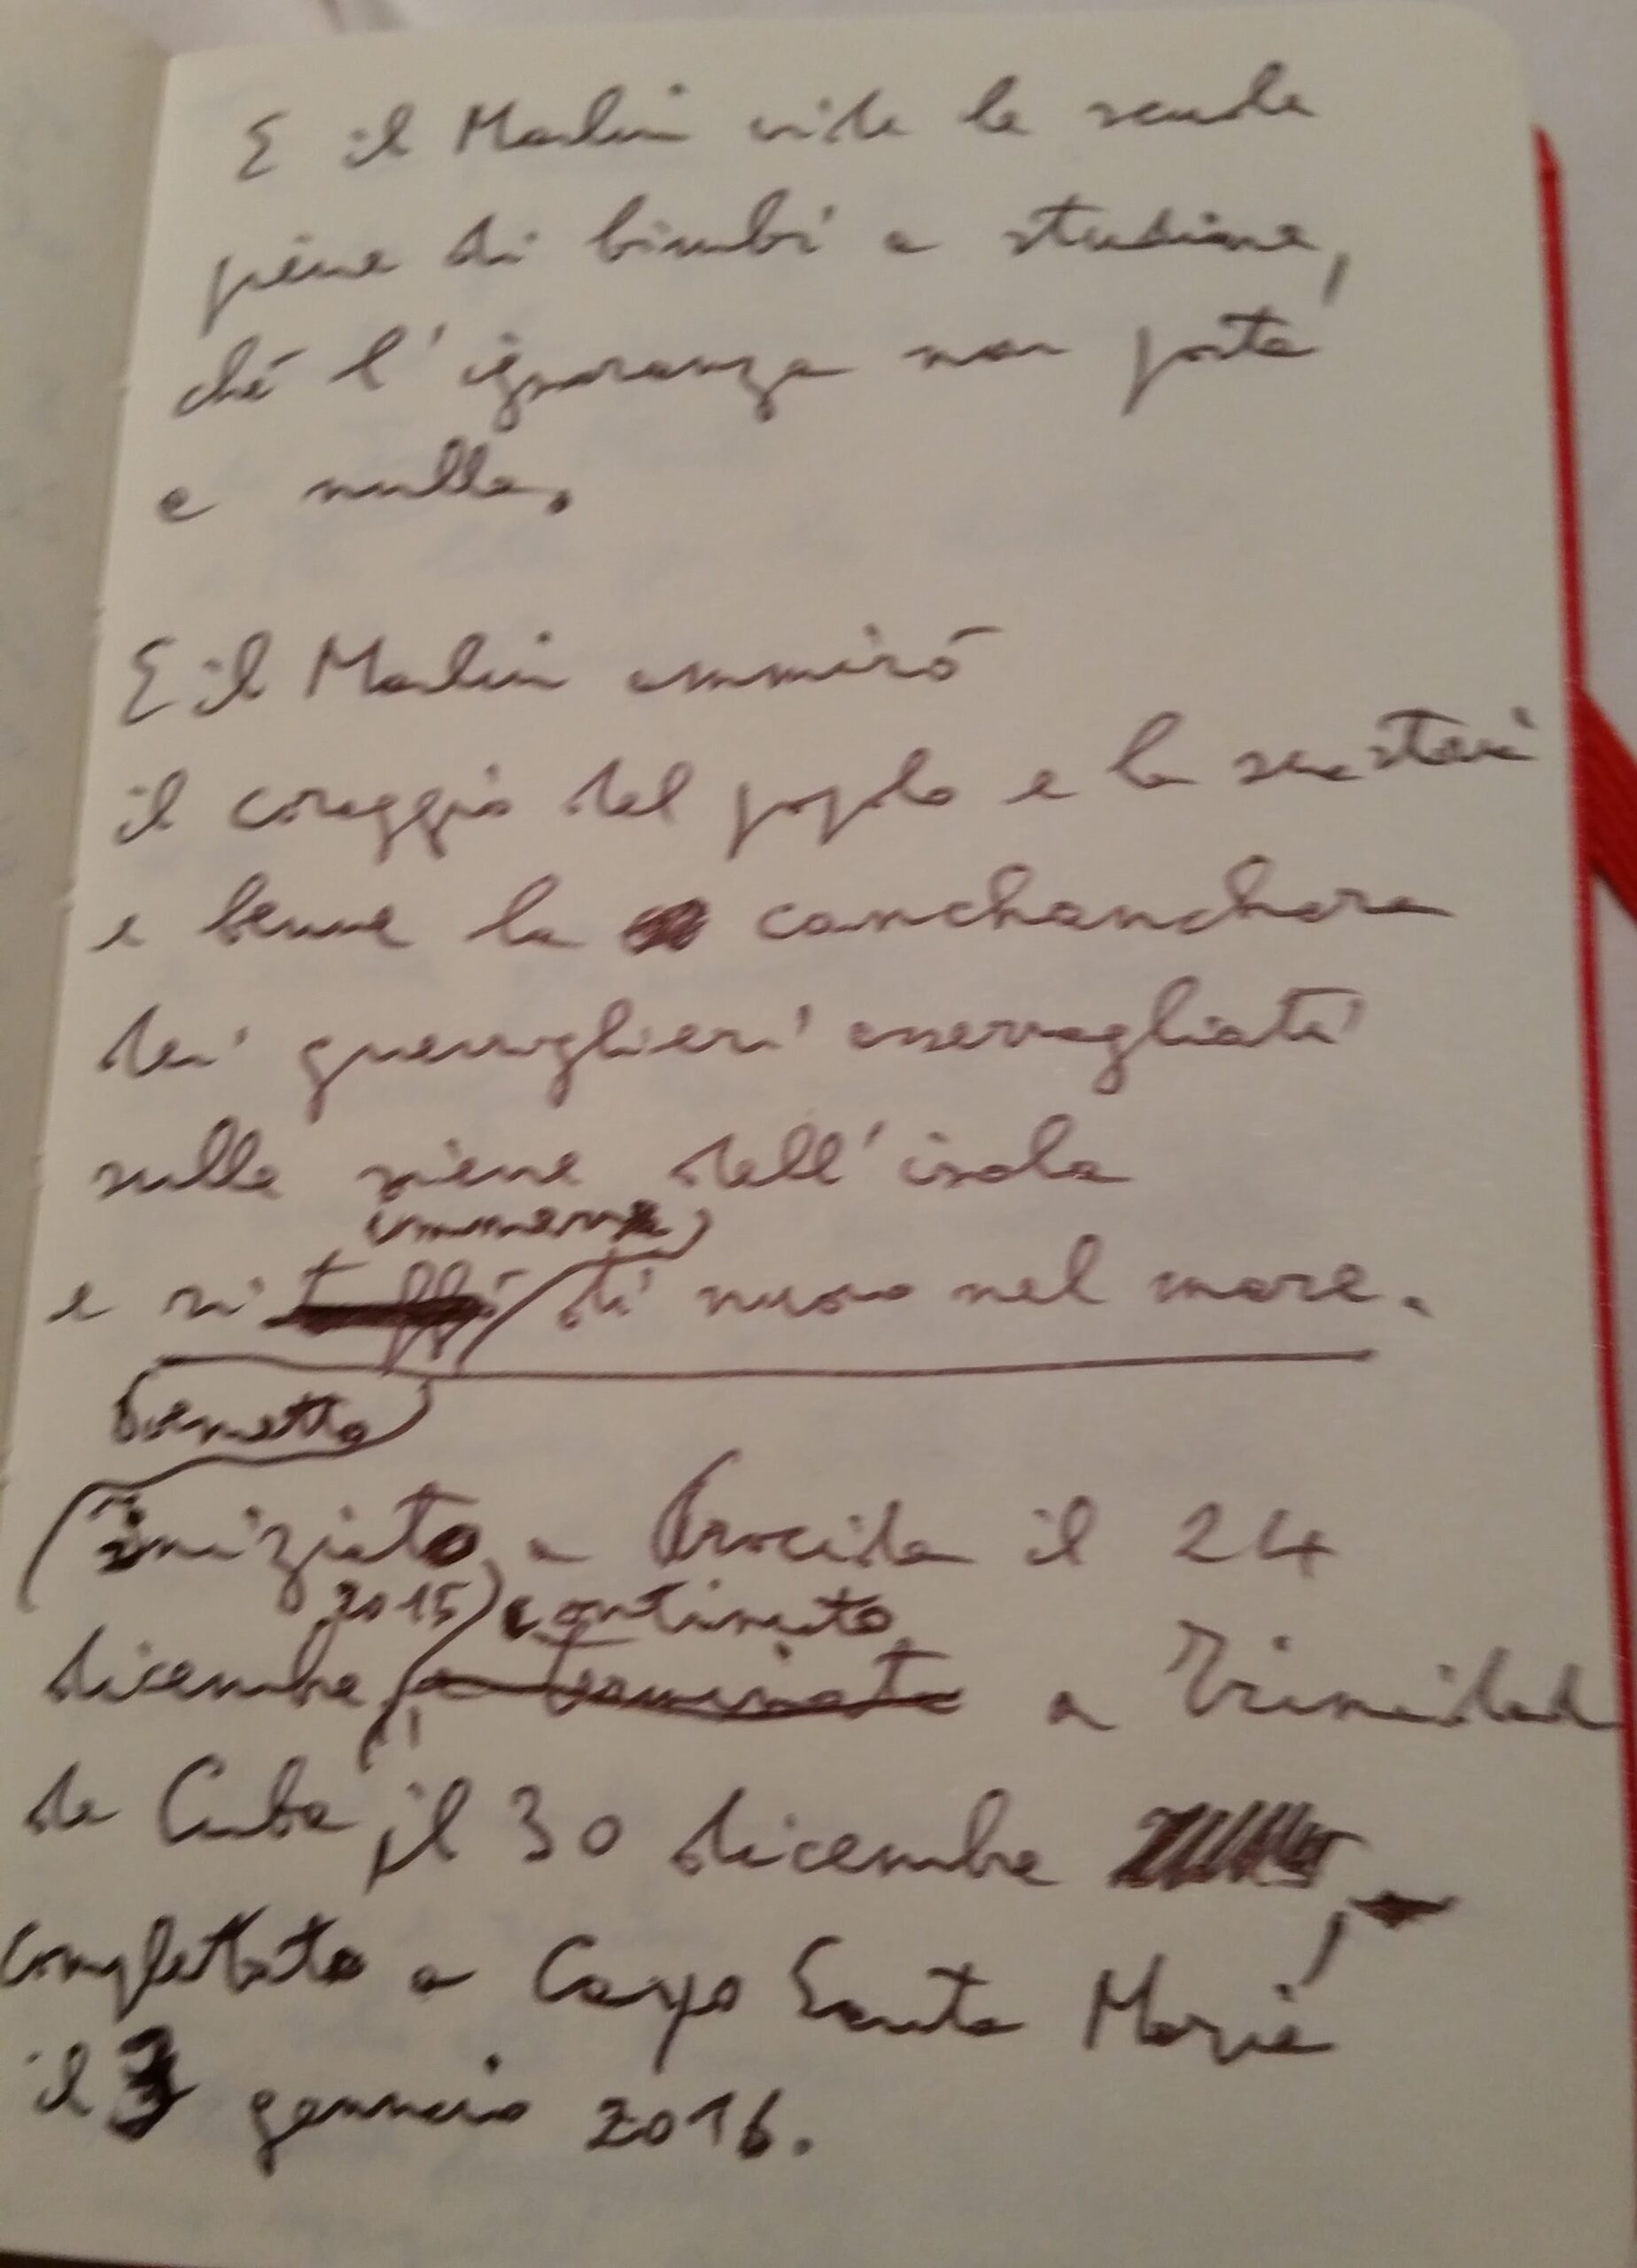 E il Marlin vide le scuole
piene di bimbi a studiare,
ché l'ignoranza non porta
a nulla.
E il Marlin ammirò
il coraggio del popolo e la sua storia
e bevve la canchanchara
dei guerriglieri asserragliati
sulle sierre dell'isola
immerse
e si tuffò di nuovo nel mare.
Poemetto
iniziato a Procida il 24
2015 continuato
dicembre, e terminato a Trinidad
de Cuba, il 30 dicembre
completato a Cayo Santa Maria
il 3 gennaio 2016.